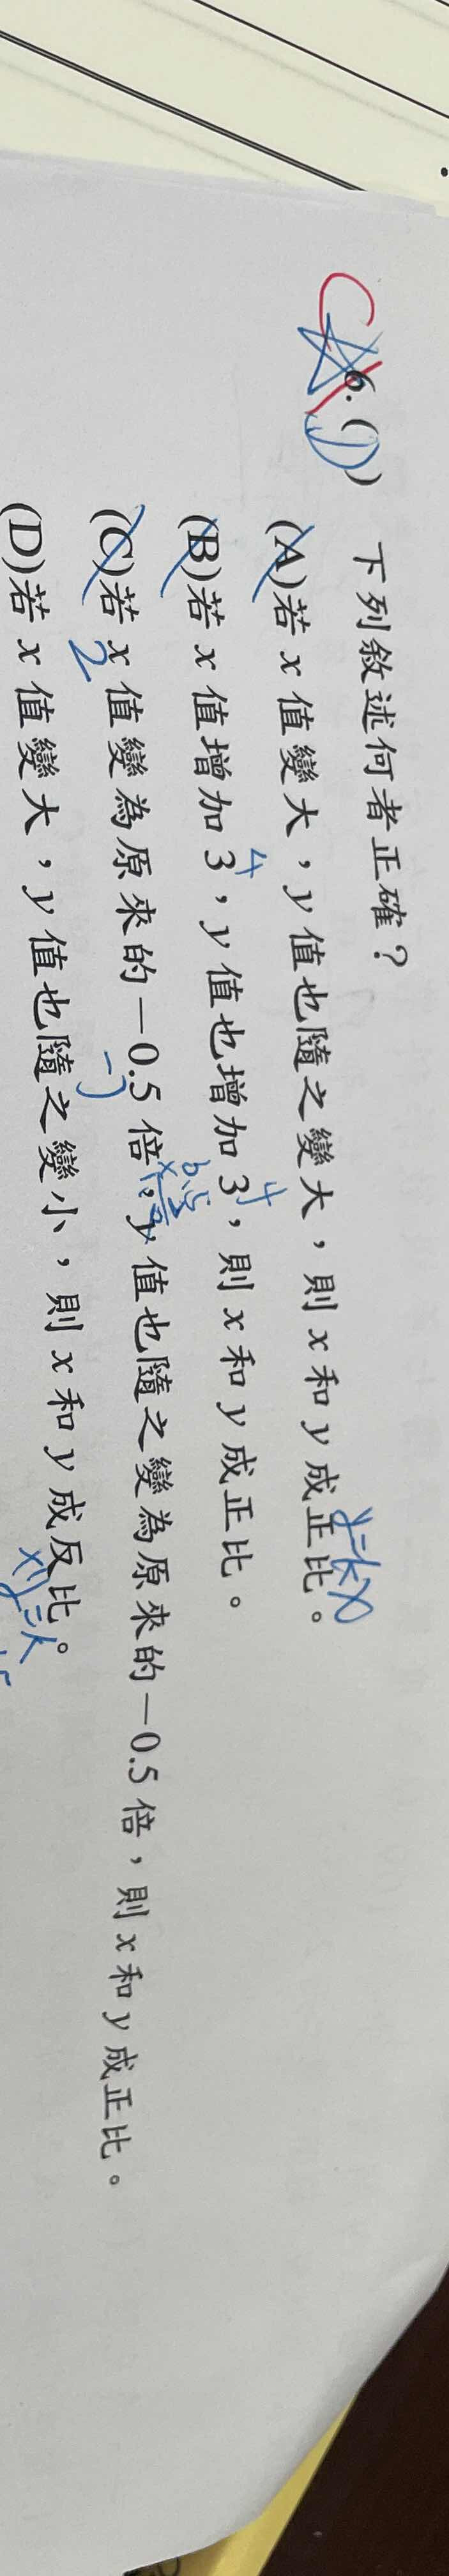 C
6. (D) 下列敘述何者正確？
(A)若 x 值變大，y 值也隨之變大，則 x 和 y 成正比。
y=kx
(B)若 x 值增加 3，y 值也增加 3，則 x 和 y 成正比。
4 4
(C)若 x 值變為原來的 −0.5 倍，y 值也隨之變為原來的 −0.5 倍，則 x 和 y 成正比。
2 -1
(D)若 x 值變大，y 值也隨之變小，則 x 和 y 成反比。
xy=k